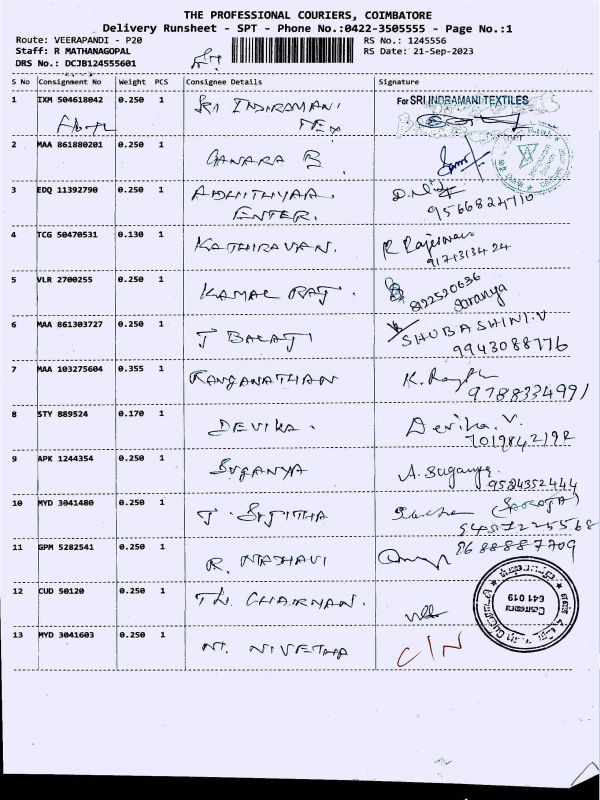 THE PROFESSIONAL COURIERS, COIMBATORE
Delivery Runsheet - SPT - Phone No.:0422-3505555 - Page No.:1
Route: VEERAPANDI - P20
RS No.: 1245556
Staff: R MATHANAGOPAL
RS Date: 21-Sep-2023
DRS No.: DCJB124555601
S No Consignment No Weight PCS Consignee Details Signature
1 IXM 504618042 0.250 1 SRI INDIRAMANI TEX For SRI INDRAMANI TEXTILES
2 MAA 861880201 0.250 1 CANARA B
3 EDQ 11392790 0.250 1 ADHITHYAA ENTER.
4 TCG 50470531 0.130 1 KATHIRAVAN. R Rajeswari
5 VLR 2700255 0.250 1 KAMAL RAJ. 8122520636 Saranya
6 MAA 861303727 0.250 1 J BALAJI SHUBASHINI.V 9943088776
7 MAA 103275604 0.355 1 RANGANATHAN 9788334991
8 STY 889524 0.170 1 DEVIKA. Devika. V. 7019842192
9 APK 1244354 0.250 1 SUGANYA A. Suganya 9524352444
10 MYD 3041480 0.250 1 J. SRJITHA (SAROJA)
11 GPM 5282541 0.250 1 R. MADHAVI
12 CUD 50120 0.250 1 TN. CHAIRMAN. 641 019
13 MYD 3041603 0.250 1 M. NIVETHA C/N